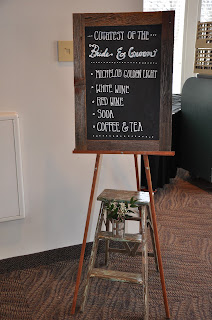 COURTESY OF THE...
Bride & Groom
• MICHELOB GOLDEN LIGHT
• WHITE WINE
• RED WINE
• SODA
• COFFEE & TEA